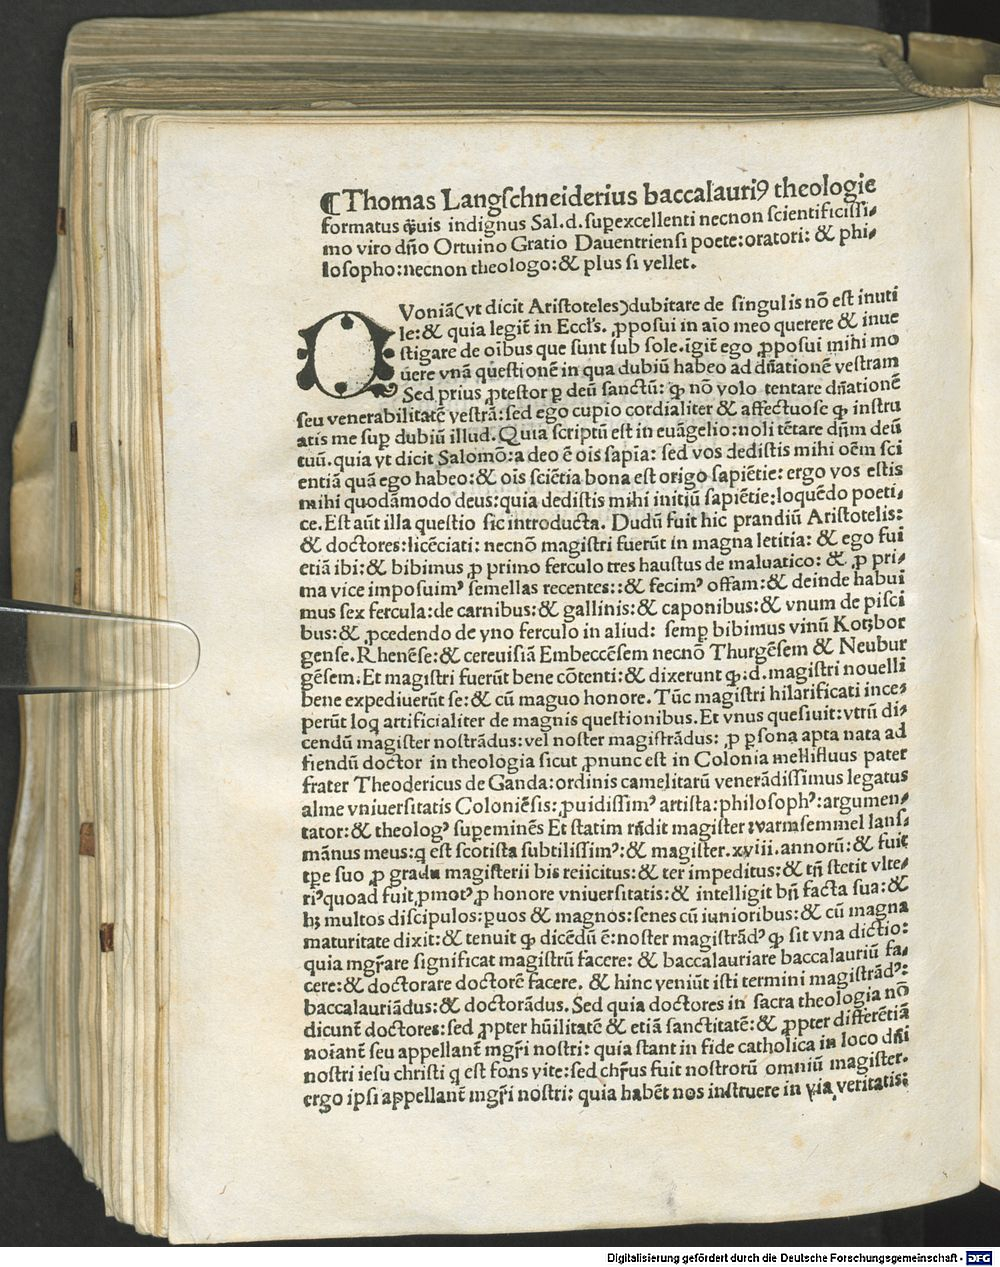 ¶Thomas Langſchneiderius baccalauriꝯ theologie
formatus q̃uis indignus Sal.d.ſuꝑexcellenti necnon ſcientificiſſi⸗
mo viro dño Ortuino Gratio Dauentrienſi poete:oratori: & phi⸗
loſopho:necnon theologo:& plus ſi vellet.
QVoniã(vt dicit Ariſtoteles)dubitare de ſingulis nõ eſt inuti
le:& quia legit̃ in Eccl's. ꝓpoſui in aĩo meo querere & inue
ſtigare de oĩbus que ſunt ſub ſole.igit̃ ego ꝓpoſui mihi mo
uere vnã queſtionẽ in qua dubiũ habeo ad dñationẽ veſtram
Sed prius ꝓteſtor ꝑ deũ ſanctũ: ꝙ nõ volo tentare dñationẽ
ſeu venerabilitatẽ veſtrã:ſed ego cupio cordialiter & affectuoſe ꝙ inſtru
atis me ſuꝑ dubiũ illud. Quia ſcriptũ eſt in euãgelio:noli tẽtare dñm deũ
tuũ.quia vt dicit Salomõ:a deo ẽ oĩs ſapĩa: ſed vos dediſtis mihi oẽm ſci
entiã quã ego habeo:& oĩs ſciẽtia bona eſt origo ſapiẽtie: ergo vos eſtis
mihi quodãmodo deus:quia dediſtis mihi initiũ ſapiẽtie:loquẽdo poeti⸗
ce.Eſt aũt illa queſtio ſic introducta. Dudũ fuit hic prandiũ Ariſtotelis:
& doctores:licẽciati: necnõ magiſtri fuerũt in magna letitia: & ego fui
etiã ibi:& bibimus ꝓ primo ferculo tres hauſtus de maluatico: & ꝓ pri⸗
ma vice impoſuimꝰ ſemellas recentes::& fecimꝰ offam:& deinde habui
mus ſex fercula:de carnibus:& gallinis:& caponibus:& vnum de piſci
bus:& ꝓcedendo de vno ferculo in aliud: ſemꝑ bibimus vinũ Kotzbor
genſe.Rhenẽſe:& cereuiſiã Embeccẽſem necnõ Thurgẽſem & Neubur
gẽſem.Et magiſtri fuerũt bene cõtenti:& dixerunt ꝙ.d.magiſtri nouelli
bene expediuerũt ſe:& cũ maguo honore.Tũc magiſtri hilarificati ince⸗
perũt loq̃ artificialiter de magnis queſtionibus.Et vnus queſiuit:vtrũ di⸗
cendũ magiſter noſtrãdus:vel noſter magiſtrãdus: ꝓ ꝑſona apta nata ad
fiendũ doctor in theologia ſicut ꝓnunc eſt in Colonia mellifluus pater
frater Theodericus de Ganda:ordinis camelitarũ venerãdiſſimus legatus
alme vniuerſitatis Coloniẽſis:ꝓuidiſſimꝰ artiſta:philoſophꝰ:argumen⸗
tator:& theologꝰ ſuꝑeminẽs Et ſtatim rñdit magiſter:varmſemmel lanſ⸗
mãnus meus:q̃ eſt ſcotiſta ſubtiliſſimꝰ:& magiſter.xviii.annorũ:& fuit
tp̃e ſuo ꝓ gradu magiſterii bis reiicitus:& ter impeditus:& tñ ſtetit vlte⸗
riꝰquoad fuit ꝓmotꝰ ꝓ honore vniuerſitatis:& intelligit bñ facta ſua:&
hꝫ multos diſcipulos:ꝑuos & magnos:ſenes cũ iunioribus:& cũ magna
maturitate dixit:& tenuit ꝙ dicẽdũ ẽ:noſter magiſtrãdꝰ ꝙ ſit vna dictio:
quia mgr̃are ſignificat magiſtrũ facere: & baccalauriare baccalauriũ fa⸗
cere:& doctorare doctorẽ facere. & hinc veniũt iſti termini magiſtrãdꝰ:
baccalauriãdus:& doctorãdus. Sed quia doctores in ſacra theologia nõ
dicunt̃ doctores:ſed ꝓpter hũilitatẽ & etiã ſanctitatẽ:& ꝓpter differẽtiã
noĩant̃ ſeu appellant̃ mgr̃i noſtri: quia ſtant in fide catholica in loco dñi
noſtri ieſu chriſti q̃ eſt fons vite:ſed chr̃us fuit noſtrorũ omniũ magiſter.
ergo ipſi appellant̃ mgr̃i noſtri: quia habẽt nos inſtruere in via veritatis:
Digitalisierung gefördert durch die Deutsche Forschungsgemeinschaft - DFG